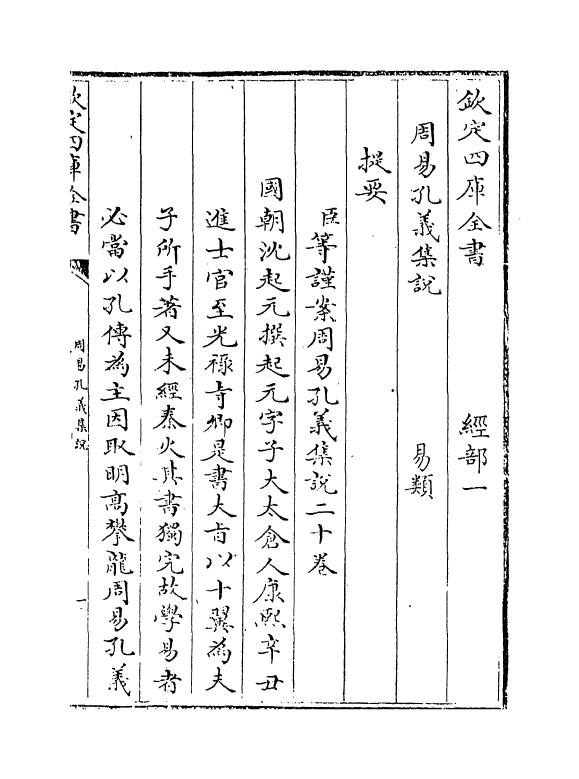 欽定四庫全書　經部一
周易孔義集說　易類
提要
臣等謹案周易孔義集說二十卷
國朝沈起元撰起元字子大太倉人康熙辛丑
進士官至光祿寺卿是書大旨以十翼為夫
子所手著又未經秦火其書獨完故學易者
必當以孔傳為主因取明高攀龍周易孔義
欽定四庫全書　周易孔義集說　一